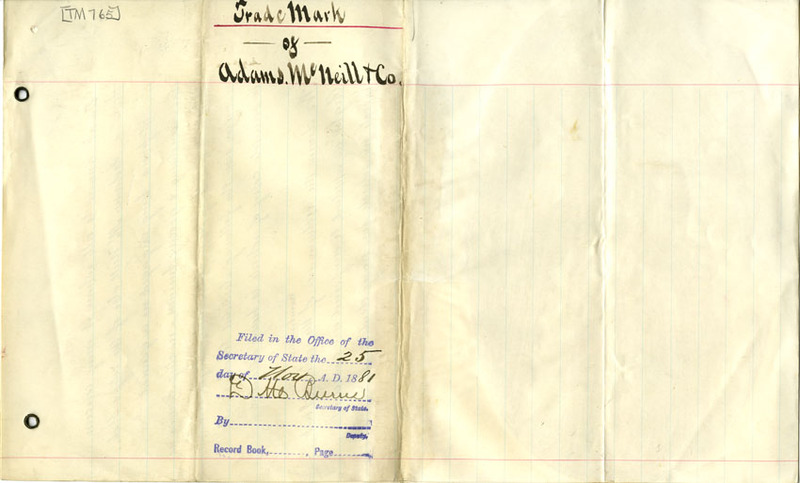 [TM 765]
Trade Mark
of
Adams. McNeill & Co.
Filed in the Office of the
Secretary of State the 25
day of Nov A. D. 1881
Secretary of State.
By
Deputy.
Record Book, , Page